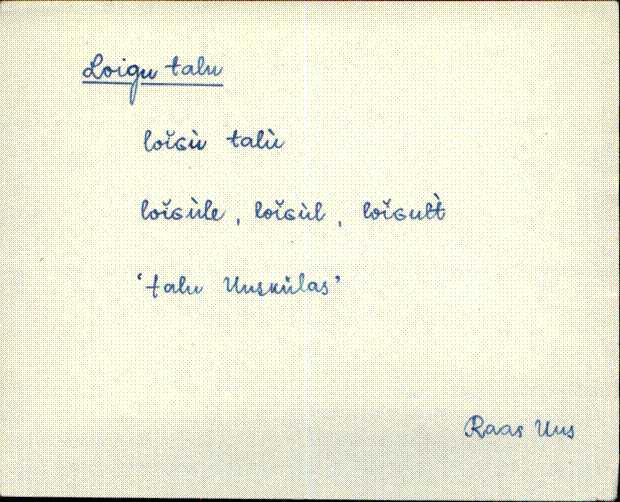 Loigu talu
loĭɢù talù
loĭɢùle, loĭɢùl, loĭɢult̀
‘talu Uuskülas’
Raas Uus